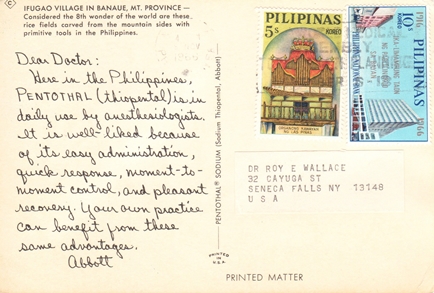 C
IFUGAO VILLAGE IN BANAUE, MT. PROVINCE —
Considered the 8th wonder of the world are these
rice fields carved from the mountain sides with
primitive tools in the Philippines.
Dear Doctor:
Here in the Philippines,
PENTOTHAL (thiopental) is in
daily use by anesthesiologists.
It is well-liked because
of its easy administration,
quick response, moment-to-
moment control, and pleasant
recovery. Your own practice
can benefit from these
same advantages.
Abbott
PENTOTHAL® SODIUM (Sodium Thiopental, Abbott)
PRINTED
IN
U.S.A.
PILIPINAS
5s
KOREO
ORGANONG KAWAYAN
NG LAS PIÑAS
1916
10s
KOREO
PILIPINAS
1966
DR ROY E WALLACE
32 CAYUGA ST
SENECA FALLS NY 13148
U S A
PRINTED MATTER